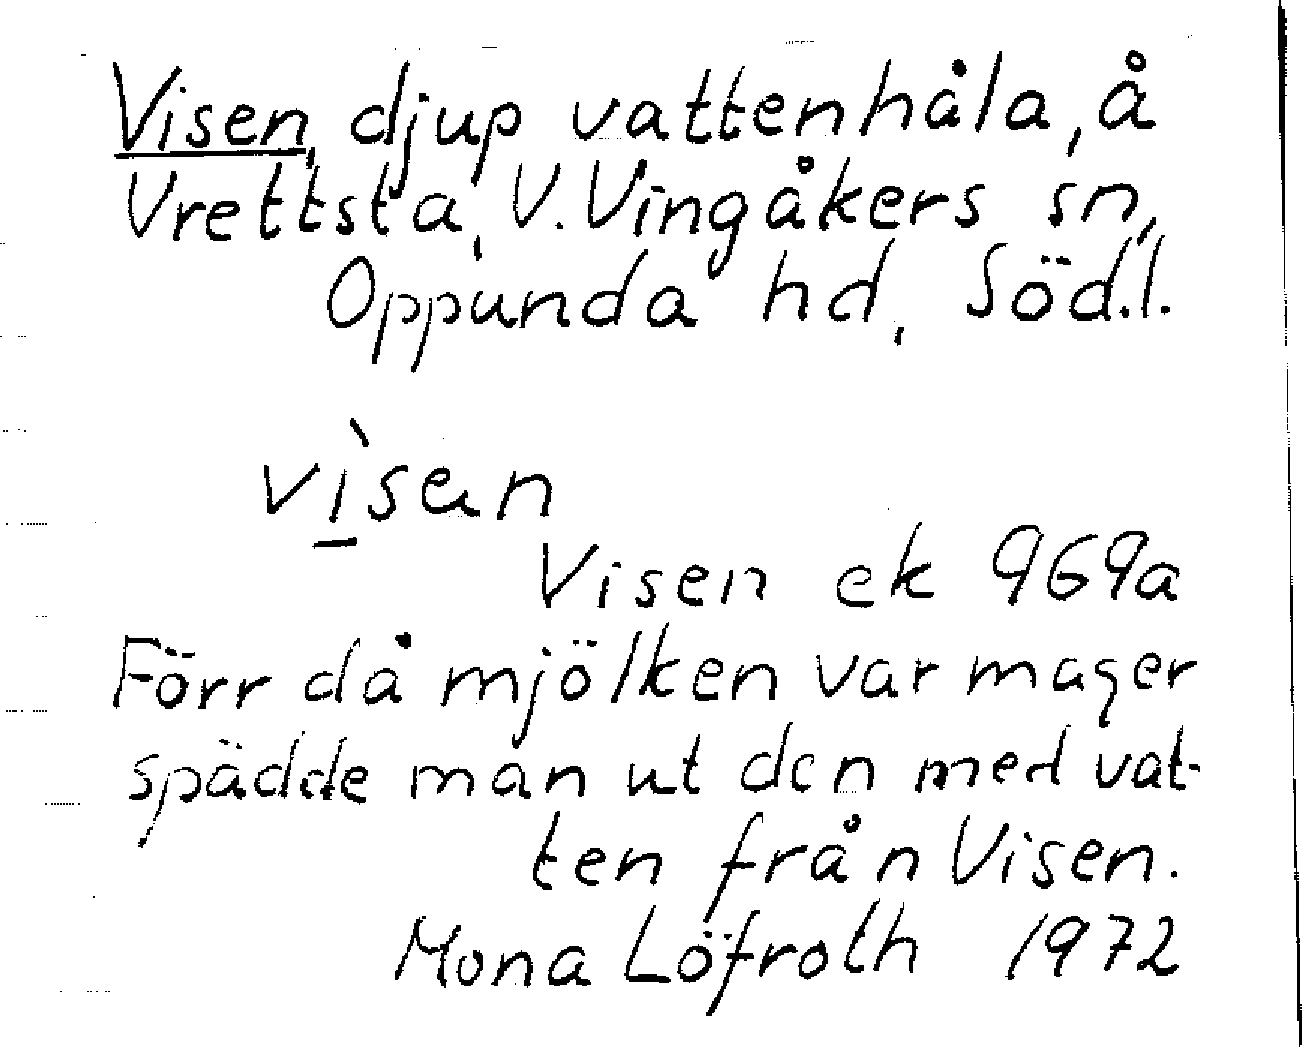 Visen, djup vattenhåla, å
Vrettsta, V. Vingåkers sn,
Oppunda hd, Söd.l.
vìsen
Visen ek 969a
Förr då mjölken var mager
spädde man ut den med vat-
ten från Visen.
Mona Löfroth 1972